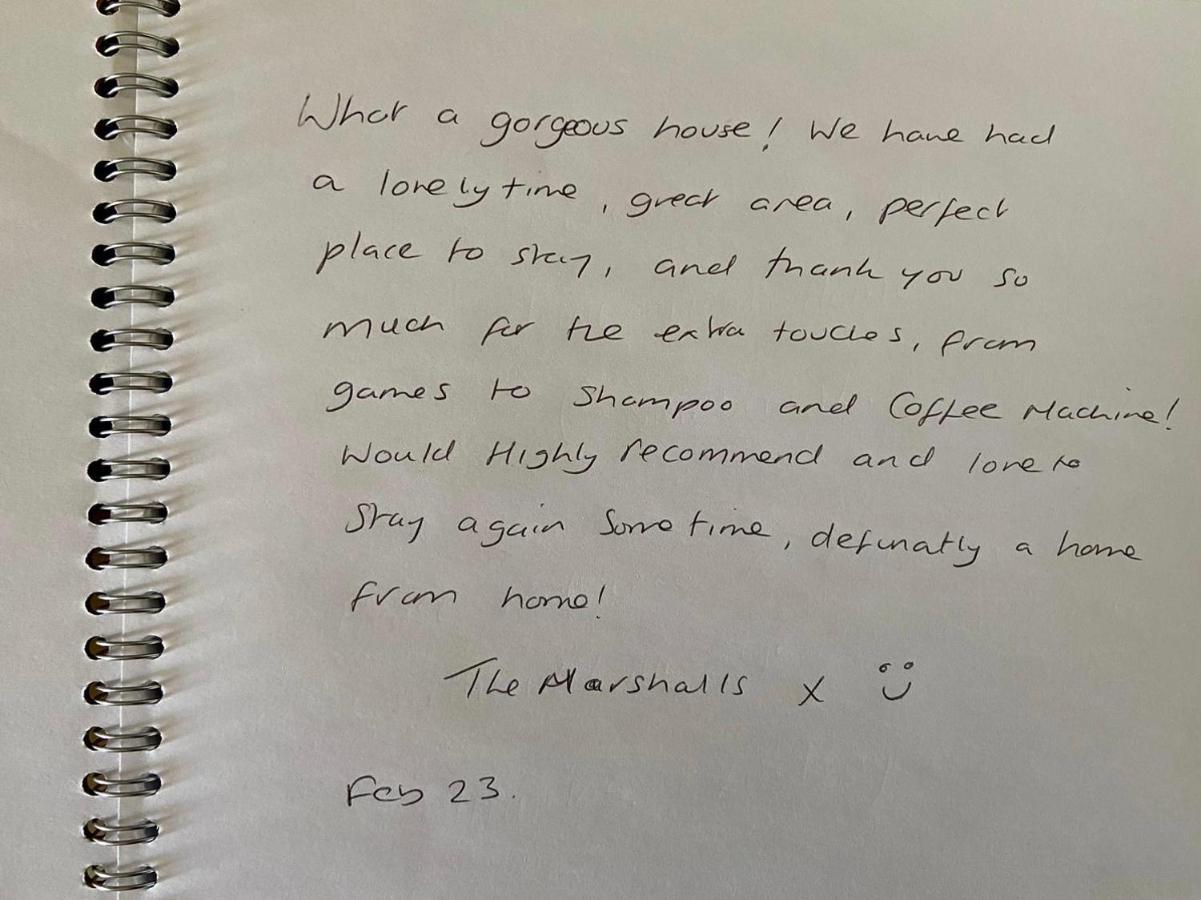 What a gorgeous house! We have had
a lovely time, great area, perfect
place to stay, and thank you so
much for the extra touches, from
games to shampoo and Coffee Machine!
Would Highly recommend and love to
stay again sometime, definatly a home
from home!
The Marshalls x :)
Feb 23.